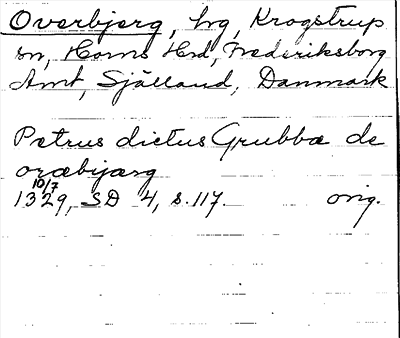 Overbjerg, hrg, Krogstrup
sn, Horns Hrd, Frederiksborg
Amt, Själland, Danmark
Petrus dictus Grubbæ de
oræbijærg
10/7
1329, SD 4, s. 117. orig.